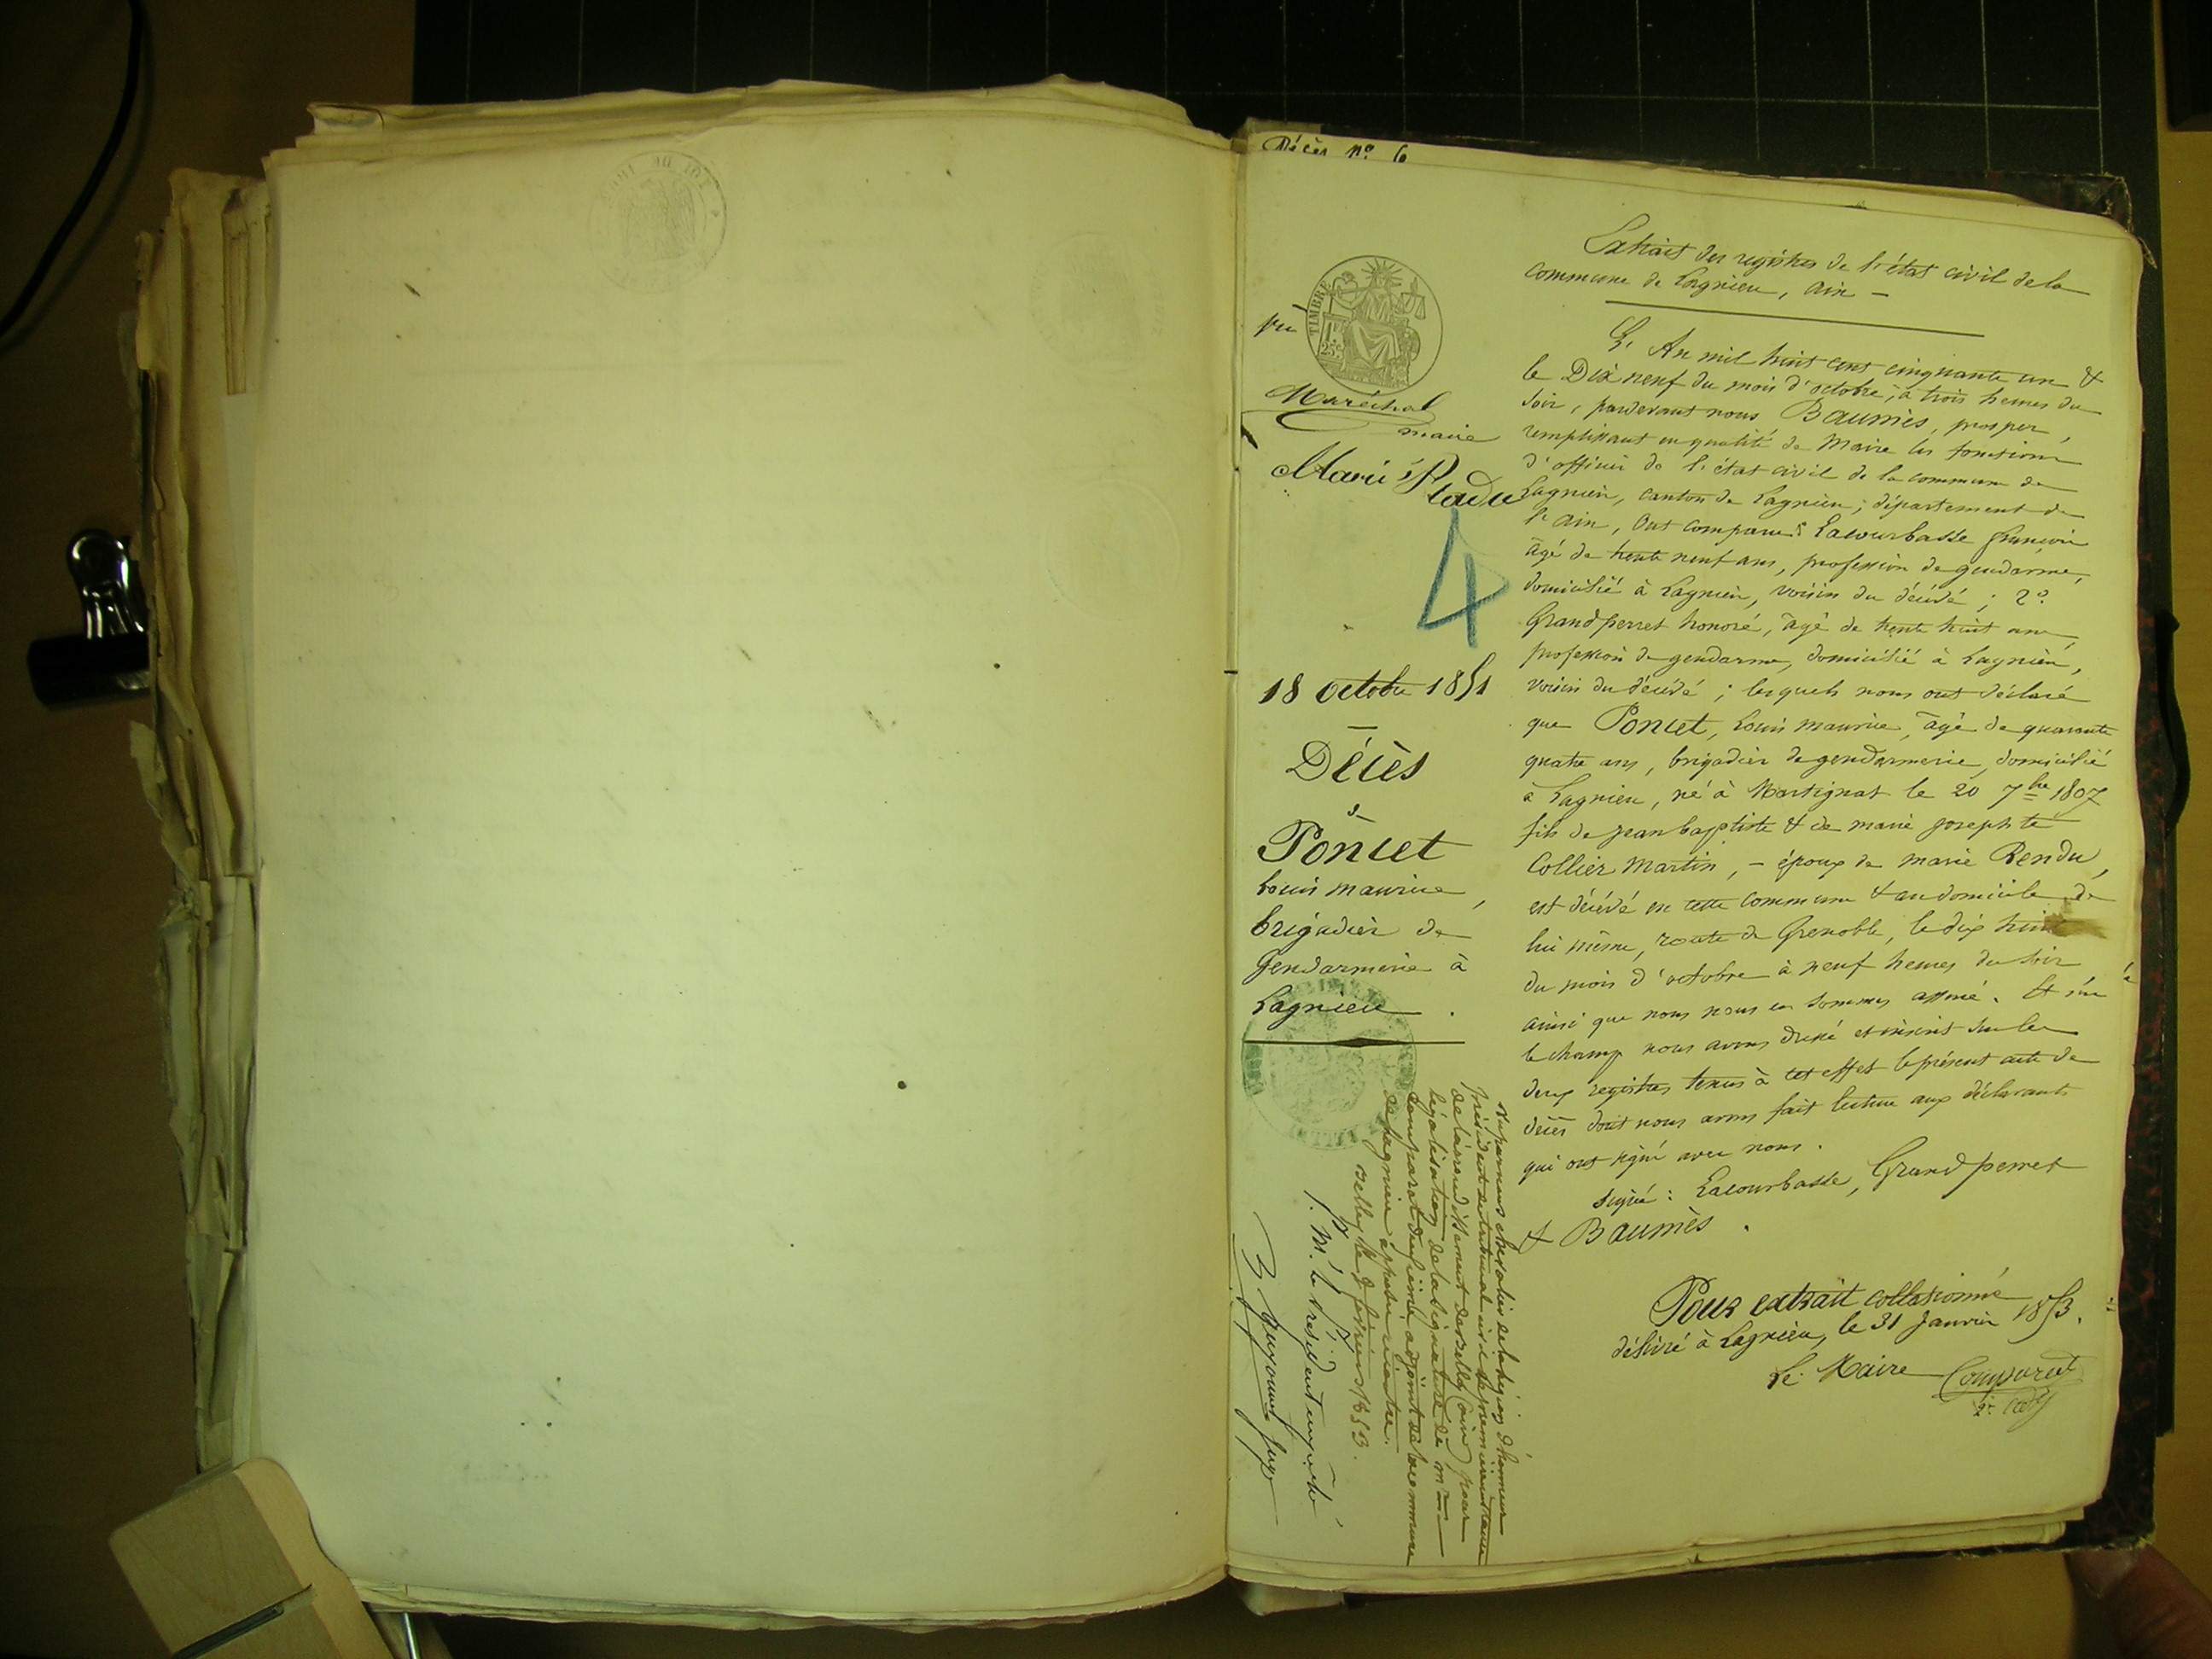 Décès nº 6
TIMBRE
1F.
25c.
vu
Maréchal
maire
4
18 octobre 1851
Décès
de
Poncet
Louis maurice,
brigadier de
gendarmerie à
Lagnieu.
Extrait des registres de l'état civil de la
commune de Lagnieu, ain —
L'An mil huit cent cinquante un &
le Dix neuf du mois d'octobre, à trois heures du
soir, pardevant nous Baumès, prosper,
remplissant en qualité de Maire les fonctions
d'officier de l'état civil de la commune de
Lagnieu, canton de Lagnieu, département de
l'ain, ont comparu: Lacourbasse françois
âgé de trente neuf ans, profession de gendarme,
domicilié à Lagnieu, voisin du décédé; 2º
Grandperret honoré, âgé de trente huit ans,
profession de gendarme, domicilié à Lagnieu,
voisin du décédé; lesquels nous ont déclaré
que Poncet, Louis maurice, âgé de quarante
quatre ans, brigadier de gendarmerie, domicilié
à Lagnieu, né à Martignat le 20 7bre 1807
fils de jean baptiste & de marie josephte
Collier Martin, - époux de marie Rendu,
est décédé en cette commune & au domicile de
lui même, route de Grenoble, le dix huit
du mois d'octobre à neuf heures du soir
ainsi que nous nous en sommes assuré. Et sur
le champ nous avons dressé et inscrit sur les
deux registres tenus à cet effet le présent acte de
décès dont nous avons fait lecture aux déclarants
qui ont signé avec nous.
signé: Lacourbasse, Grandperret
& Baumès.
Pour extrait collationné
délivré à Lagnieu, le 31 Janvier 1853.
Le Maire
Comparat
2e adj
Vu par nous chevalier de la légion d'honneur
président du tribunal civil de première instance
de l'arrondissement de Belley (ain) pour
légalisation de la signature de M.
Comparat deuxième adjoint de la commune
de Lagnieu apposée ci contre.
Belley le 2 février 1853.
P. M. le Président empêché